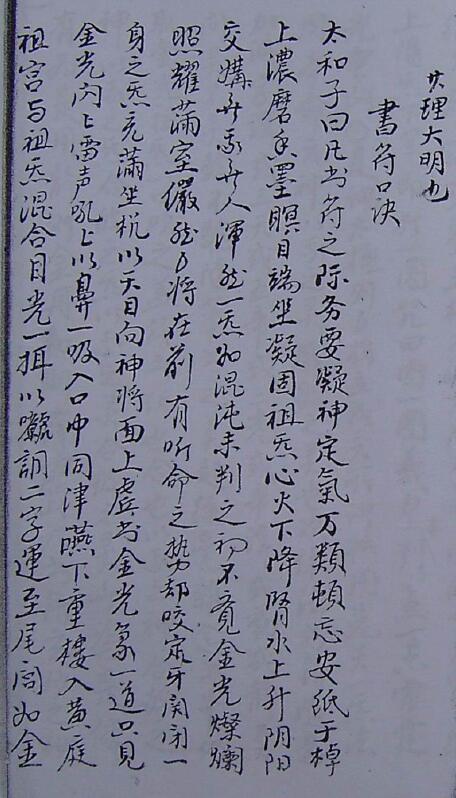 其理大明也
書符口诀
太和子曰凡书符之际务要凝神定氣万類頓忘安紙于棹
上濃磨香墨瞑目端坐凝固祖炁心火下降腎水上升阴阳
交媾无我无人渾然一炁如混沌未判之初不覚金光燦爛
照耀滿室儼然为將在前有听命之势却咬定牙関闭一
身之炁充滿坐桄以天目向神将面上虚书金光篆一道只見
金光闪上雷声吼上以鼻一吸入口中同津嚥下重樓入黄庭
祖宫与祖炁混合目光一揖以 二字運至尾闾如金